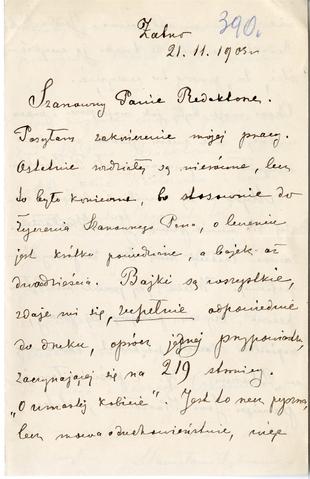 390.
Zatno
21. 11. 1905 r.
Szanowny Panie Redaktorze.
Posyłam zakończenie mojej pracy.
Ostatnie rozdziały są nierówne, lecz
to było konieczne, bo stosownie do
życzenia Szanownego Pana, o leczeniu
jest krótko powiedziane, a bajek aż
dwadzieścia. Bajki są wszystkie,
zdaje mi się, zupełnie odpowiednie
do druku, oprócz jednej przypowiastki,
zaczynającej się na 219 stronicy.
„O umarłej kobiecie". Jest to rzecz
lecz mowa o duchowieństwie, więc